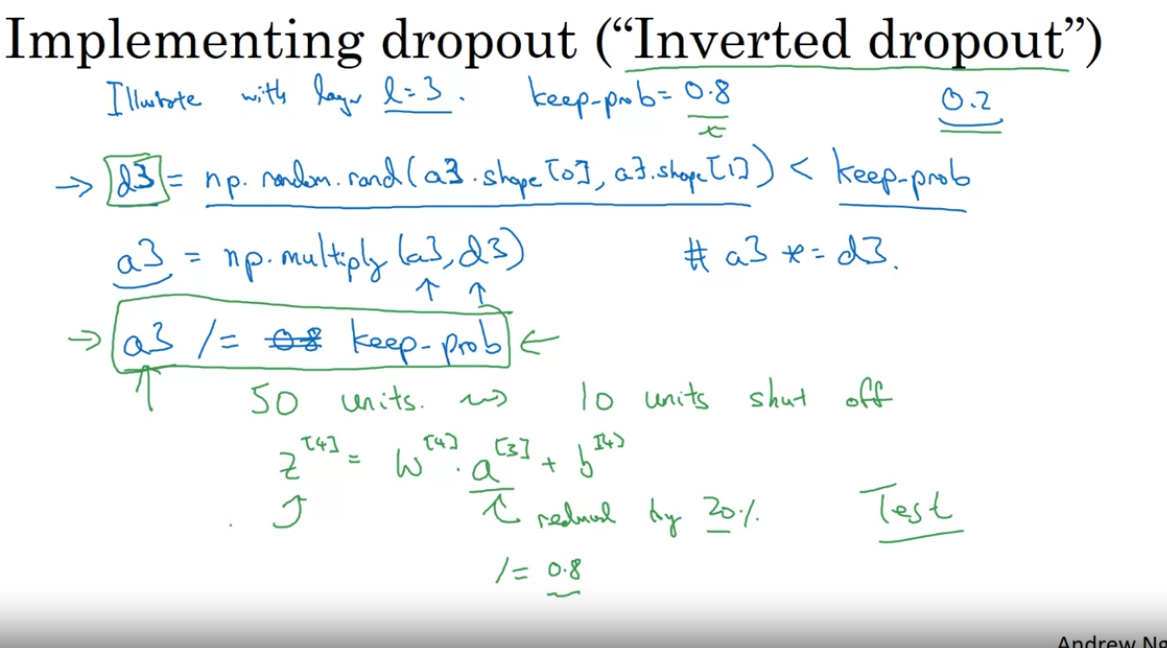 Implementing dropout (“Inverted dropout”)
Illustrate with layer l=3. keep-prob= 0.8 0.2
→ d3 = np.random.rand(a3.shape[0], a3.shape[1]) < keep-prob
a3 = np.multiply(a3, d3) # a3 *= d3.
→ a3 /= 0.8 keep-prob ←
50 units. ⇝ 10 units shut off
z^[4] = W^[4] · a^[3] + b^[4]
reduced by 20%. Test
/= 0.8
Andrew Ng